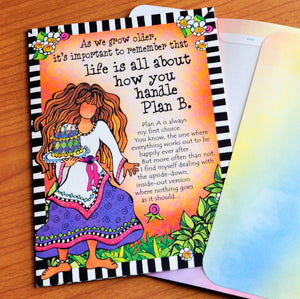 As we grow older,
it's important to remember that
life is all about
how you
handle
Plan B.
Plan A is always
my first choice.
You know, the one where
everything works out to be
happily ever after.
But more often than not,
I find myself dealing with
the upside-down,
inside-out version
where nothing goes
as it should...